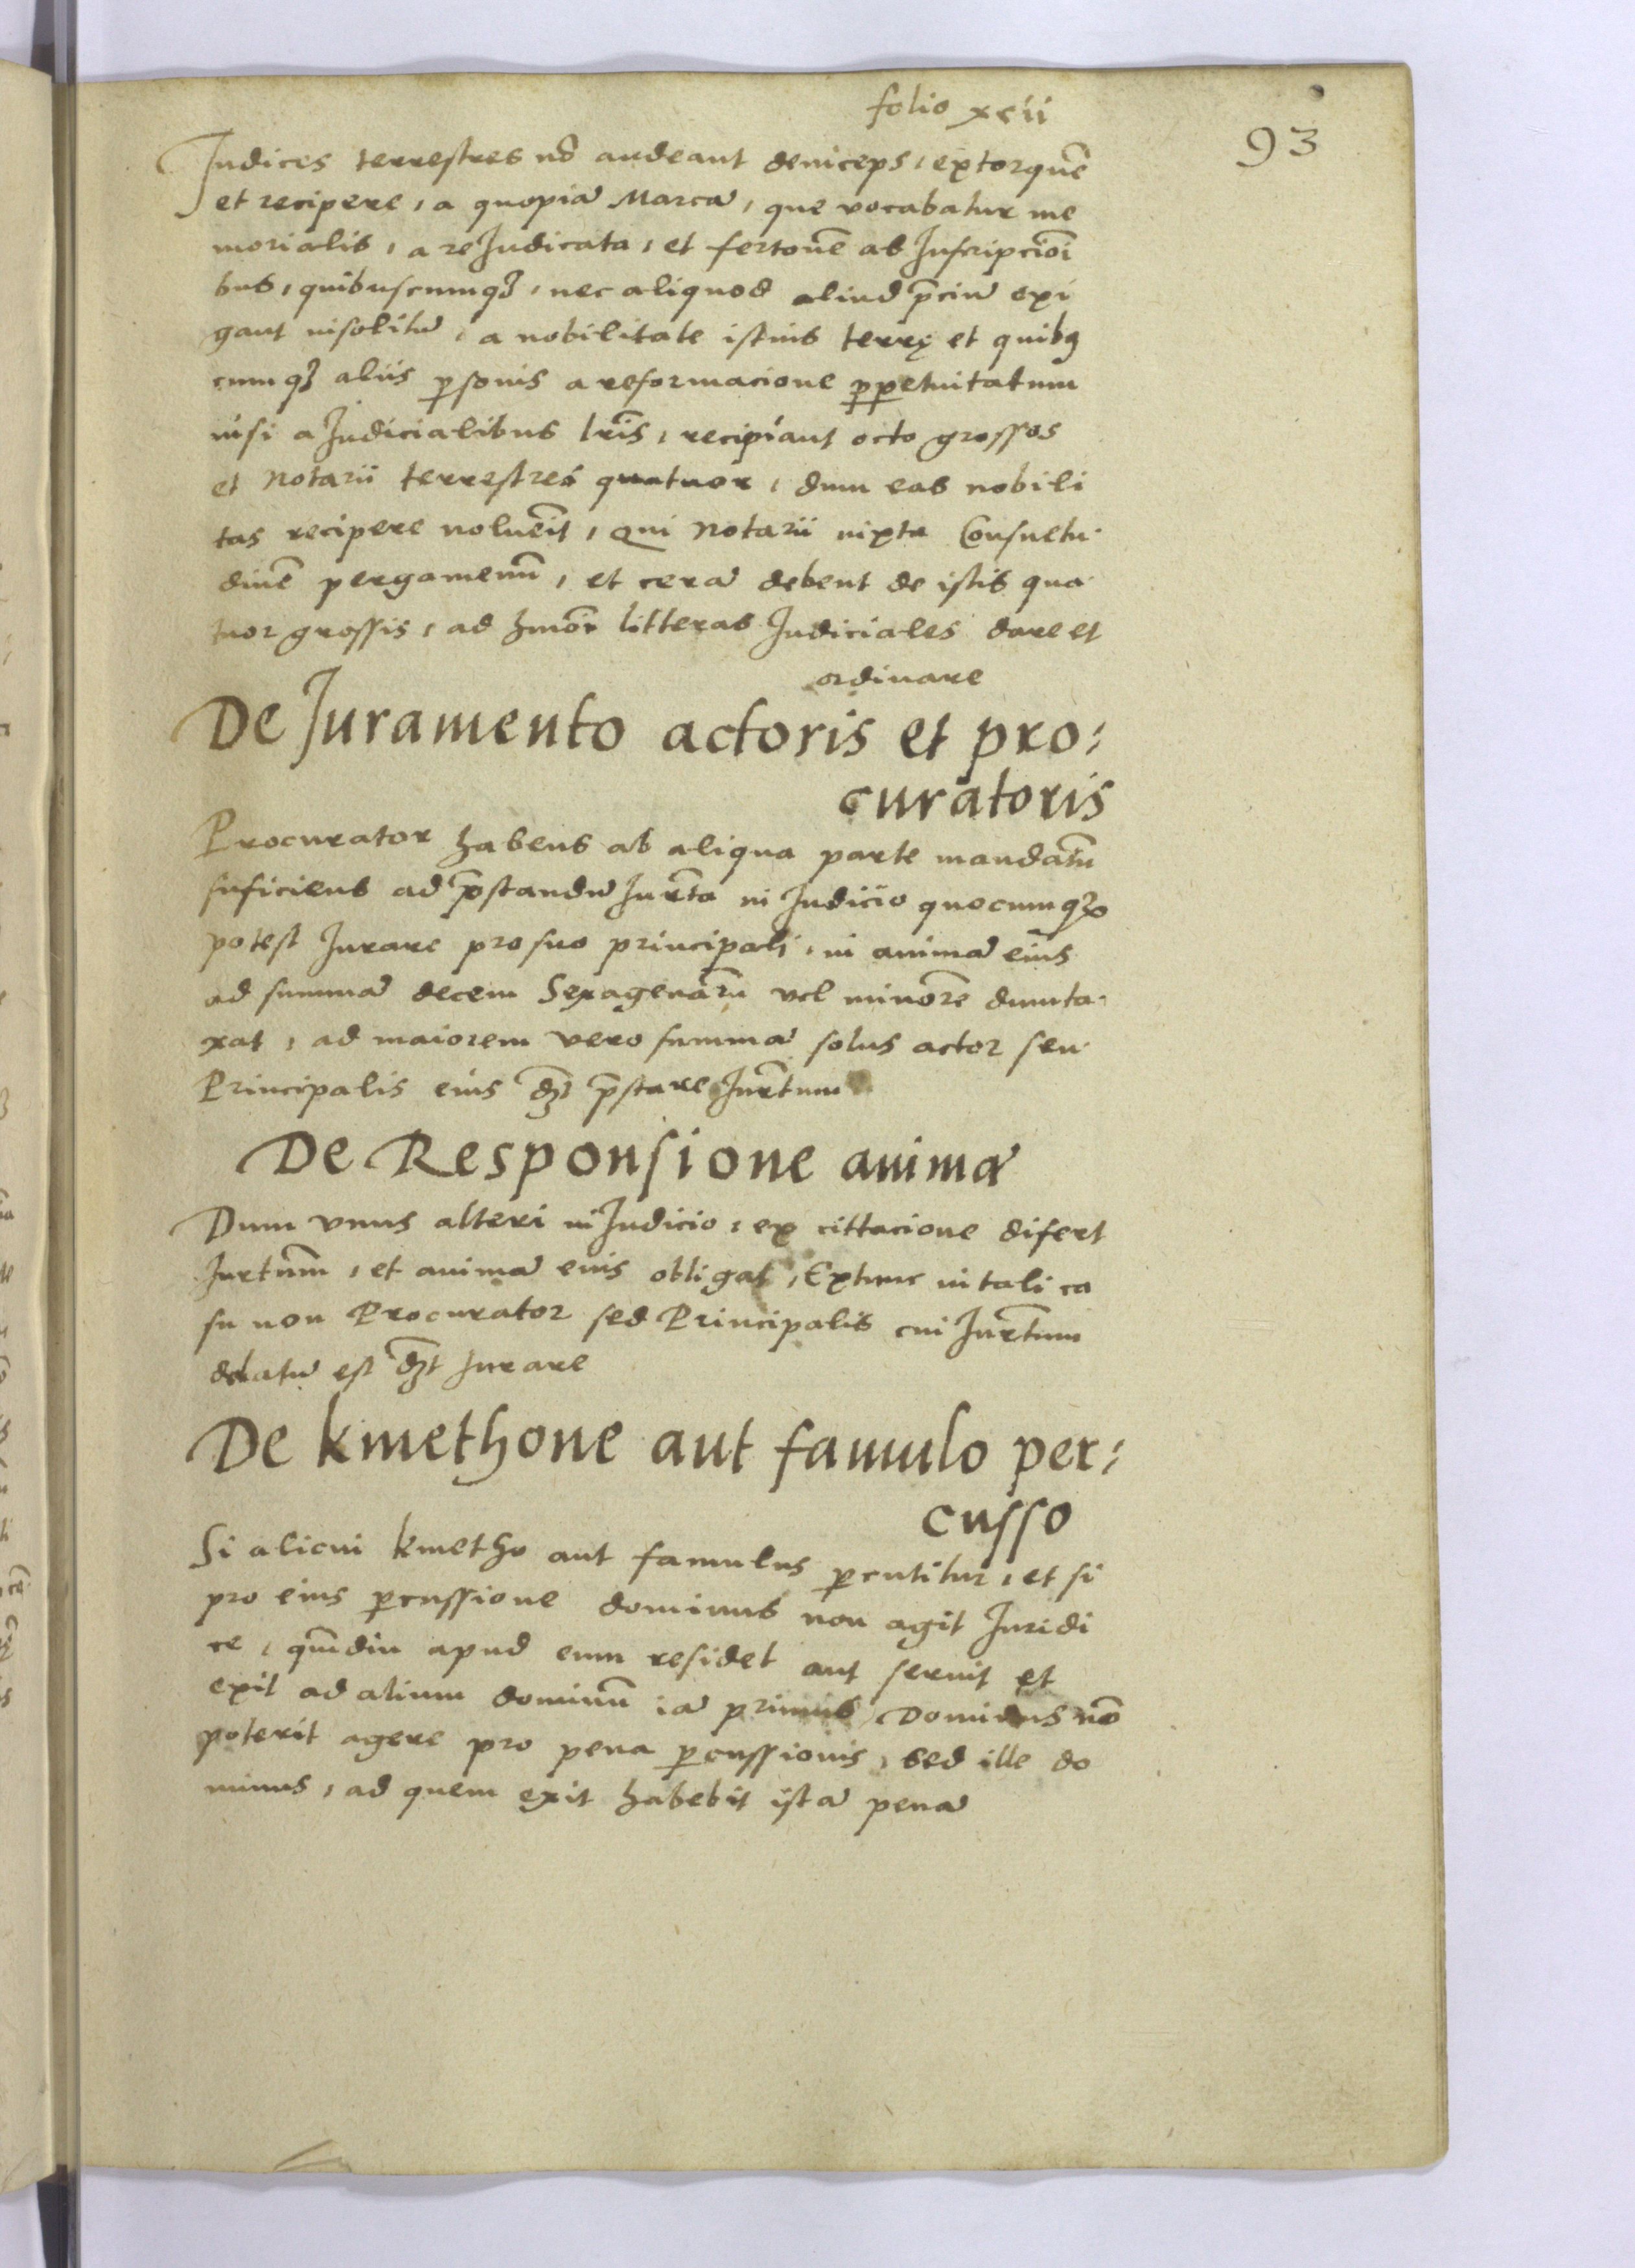 folio xcii
93
Judices terrestres nō audeant deniceps, extorquē
et recipere, a quopiā Marcā, que vocabatur me
morialis, a re Judicata, et fertonē ab Inscripcioī
bus, quibuscumqꝫ, nec aliquod aliud p̄ciū exi
gant insolitū, a nobilitate istius terrę et quibꝫ
cumqꝫ aliis ꝑsonis a reformacione ꝑpetuitatum
nisi a Judicialibus lr̄is, recipiant octo grossos
et Notarii terrestres quatuor, dum eas nobili
tas recipere voluēit, Qui Notarii iuxta Consuetu
dinē pergamenū, et cerā debent de istis qua
tuor grossis, ad hm̄oi litteras Judiciales dare et
ordinare
De Juramento actoris et pro:
curatoris
Procurator habens ab aliqua parte mandatū
suficiens ad p̄standū Jur̄ta in Judicio quocumqꝫ
potest Jurare pro suo principali, in animā eius
ad summā decem Sexagenarū vel minorē dumta
xat, ad maiorem vero summā solus actor seu
Principalis eius dꝫ p̄stare Jur̄tum
De Responsione animā
Dum vnus alteri in Judicio, ex cittacione difert
Jurtum̄, et animā eius obligat, Extunc in tali ca
su non Procurator sed Principalis cui Jur̄tum
delatū est dꝫt Jurare
De kmethone aut famulo per:
cusso
Si alicui kmetho aut famulus ꝑcutitur, et si
pro eius ꝑcussione dominus non agit Juridi
ce, qm̄diu apud eum residet aut seruit et
exit ad alium dominū iā primus Dominus nō
poterit agere pro pena ꝑcussionis, sed ille do
minus, ad quem exit habebit istā penā